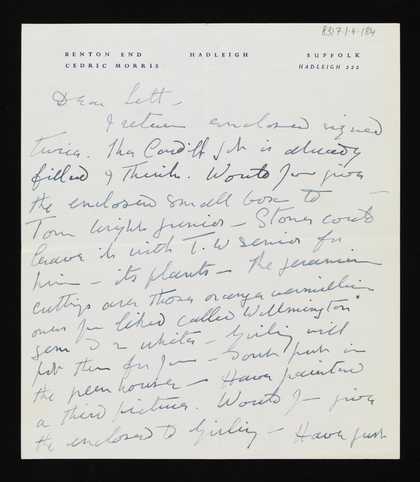 8317.1.4.184
BENTON END HADLEIGH SUFFOLK
CEDRIC MORRIS HADLEIGH 222
Dear Lett -
I return enclosed signed
twice. The Cardiff job is already
filled I think. Would you give
the enclosed small box to
Tom Wright junior - Stones could
leave it with T.W senior for
him - its plants - The geranium
cuttings are those orange vermillion
ones you liked called "Wilmington"
gem & 2 white - Girling will
pot them for you - put in
the greenhouse - Have painted
a third picture. Would you give
the enclosed to Girling - Have just